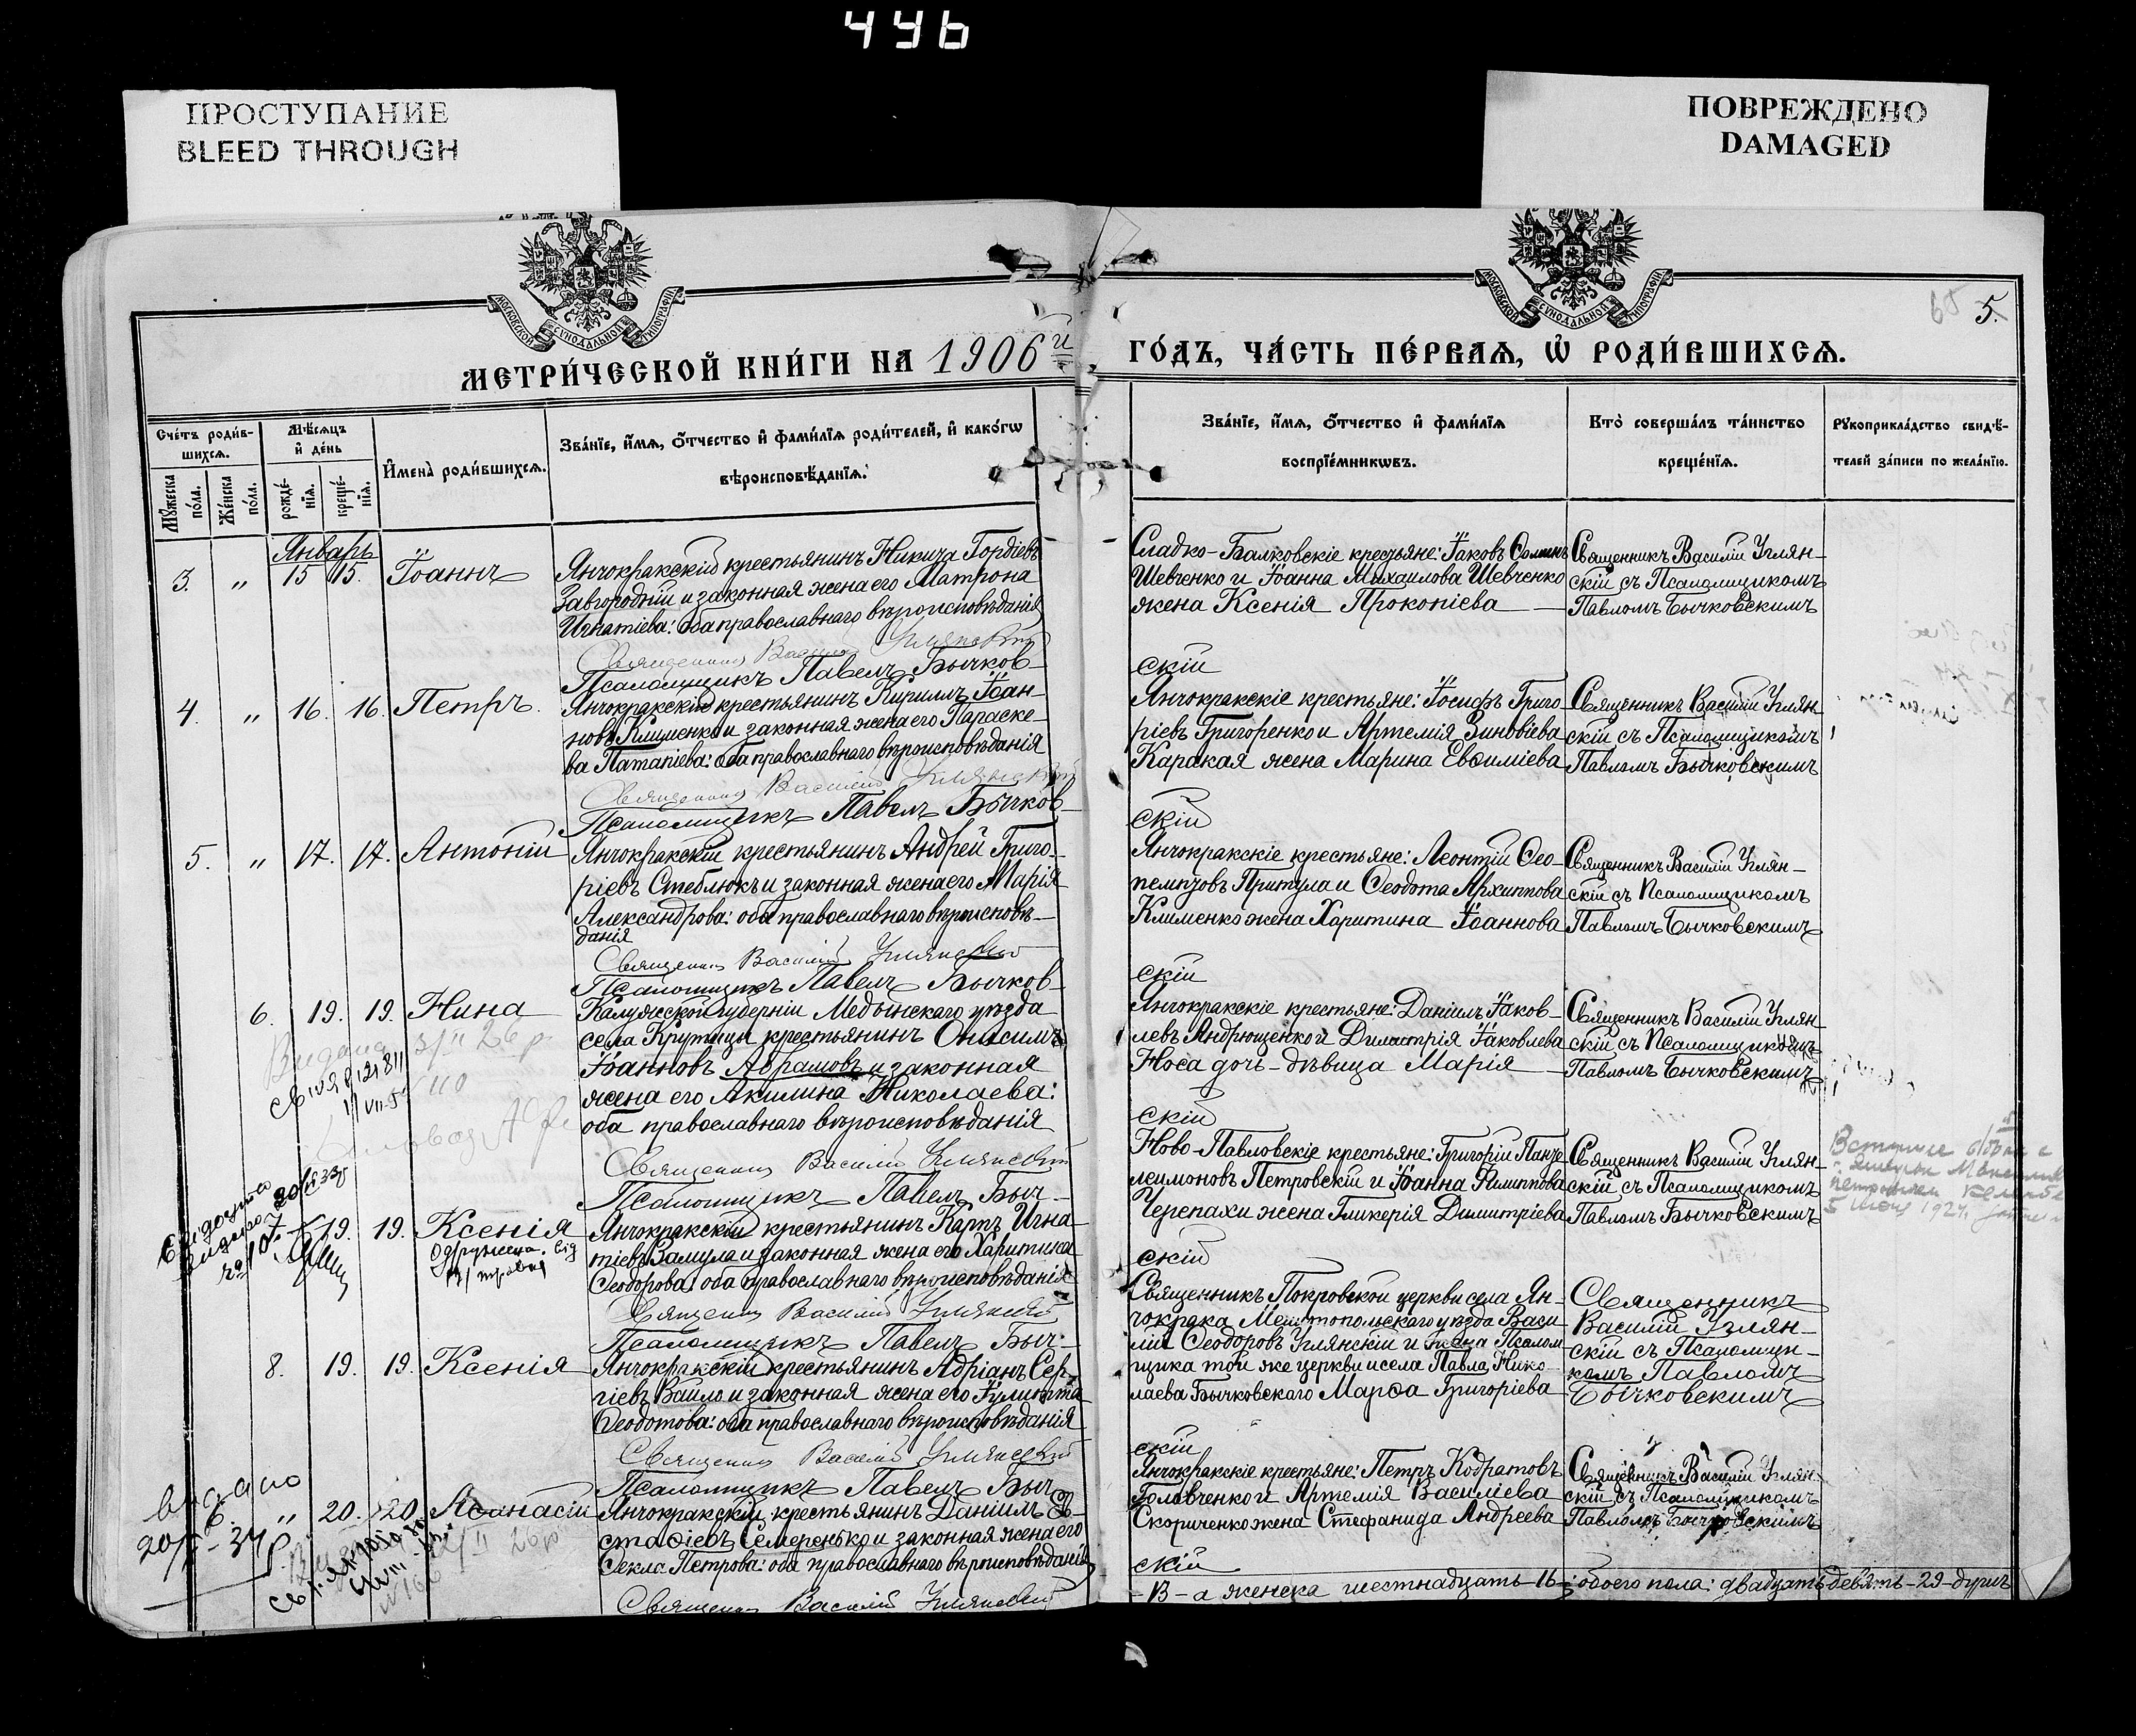 446
ПРОСТУПАНИЕ
BLEED THROUGH
ПОВРЕЖДЕНО
DAMAGED
МОСКОВСКОЙ СѴНОДАЛЬНОЙ ТИПОГРАФІИ
МОСКОВСКОЙ СѴНОДАЛЬНОЙ ТИПОГРАФІИ
5.
МЕТРИ́ЧЕСКОЙ КНИ́ГИ НА 1906й
ГО́ДЪ, ЧА́СТЬ ПЕ́РВАѦ, Ѽ РОДИ́ВШИХСѦ.
Сче́тъ роди́в-
шихсѧ.
Мꙋ́жеска по́ла.
Же́нска по́ла.
Мѣ́сѧцъ
и҆ де́нь
рожде́-
нїѧ.
креще́-
нїѧ.
И҆мена̀ роди́вшихсѧ.
Зва́нїе, и҆́мѧ, ѻ҆́тчество и҆ фами́лїѧ роди́телей, и҆ како́гѡ
вѣроисповѣ́данїѧ.
Зва́нїе, и҆́мѧ, ѻ҆́тчество и҆ фами́лїѧ
воспрїе́мникѡвъ.
Кто̀ соверша́лъ та́инство
креще́нїѧ.
Рꙋкоприкла́дство свидѣ́-
телей за́писи по жела́нїю.
Январь
3. „ 15 15. Іоаннъ
Янчокракскій крестьянинъ Никита Гордіевъ
Завгородній и законная жена его Матрона
Игнатіева: оба православнаго вѣроисповѣданія
Священникъ Василій Углянскій
Псаломщикъ Павелъ Бычков-
Сладко-Балковскіе крестьяне: Іаковъ
Шевченко и Іоанна Михаилова Шевченко
жена Ксенія Прокопіева
скій
Священникъ Василій Углян-
скій съ Псаломщикомъ
Павломъ Бычковскимъ
4. „ 16. 16. Петръ.
Янчокракскій крестьянинъ Кириллъ Іоан-
новъ Клименко и законная жена его Параске-
ва Патапіева: оба православнаго вѣроисповѣданія
Священникъ Василій Углянскій
Псаломщикъ Павелъ Бычков-
Янчокракскіе крестьяне: Іосифъ Григо-
ріевъ Григоренко и Артемія Зиновіева
Карская жена Марина Евѳиміева
скій
Священникъ Василій Углян-
скій съ Псаломщикомъ
Павломъ Бычковскимъ
5. „ 17. 17. Антоній
Янчокракскій крестьянинъ Андрей Григо-
ріевъ Стеблюкъ и законная жена его Марія
Александрова: оба православнаго вѣроисповѣ-
данія
Священникъ Василій Углянскій
Псаломщикъ Павелъ Бычков-
Янчокракскіе крестьяне: Леонтій Ѳео-
пемптовъ Притула и Ѳеодота Архиппова
Клименко жена Харитина Іоаннова
скій
Священникъ Василій Углян-
скій съ Псаломщикомъ
Павломъ Бычковскимъ
6. 19. 19. Нина
Калужской губерніи Медынскаго уѣзда
села Крутицы крестьянинъ Онисимъ
Іоанновъ Абрамовъ и законная
жена его Акилина Николаева:
оба православнаго вѣроисповѣданія
Священникъ Василій Углянскій
Псаломщикъ Павелъ Быч-
Янчокракскіе крестьяне: Даніилъ Іаков-
левъ Андрющенко и Димитрія Іаковлева
Носа дочь-дѣвица Марія
скій
Священникъ Василій Углян-
скій съ Псаломщикомъ
Павломъ Бычковскимъ
7. 19. 19. Ксенія
Янчокракскій крестьянинъ Карпъ Игна-
тіевъ Замула и законная жена его Харитина
Ѳеодорова: оба православнаго вѣроисповѣданія
Священникъ Василій Углянскій
Псаломщикъ Павелъ Быч-
Ново-Павловскіе крестьяне: Григорій Панте-
леимоновъ Петровскій и Іоанна Филиппова
Черепахи жена Гликерія Димитріева
скій
Священникъ Василій Углян-
скій съ Псаломщикомъ
Павломъ Бычковскимъ
8. 19. 19. Ксенія
Янчокракскій крестьянинъ Адріанъ Сер-
гіевъ Вайло и законная жена его Іулитта
Ѳеодотова: оба православнаго вѣроисповѣданія
Священникъ Василій Углянскій
Псаломщикъ Павелъ Быч-
Священникъ Покровской церкви села Ян-
чокрака Мелитопольскаго уѣзда Васи-
лій Ѳеодоровъ Углянскій и жена Псалом-
щика той же церкви и села Павла Нико-
лаева Бычковскаго Марѳа Григоріева
скій
Священникъ
Василій Углян-
скій съ Псаломщи-
комъ Павломъ
Бычковскимъ
видано
6. „ 20. 20. Аѳанасій
Янчокракскій крестьянинъ Даніилъ Ев-
стаѳіевъ Семеренько и законная жена его
Ѳекла Петрова: оба православнаго вѣроисповѣданія
Священникъ Василій Углянскій
Янчокракскіе крестьяне: Петръ Кодратовъ
Головченко и Артемія Василіева
Скориченко жена Стефанида Андреева
скій
Священникъ Василій Углян-
скій съ Псаломщикомъ
Павломъ Бычковскимъ
-13-а женска шестнадцать-16-; обоего пола: двадцать девять-29-душъ